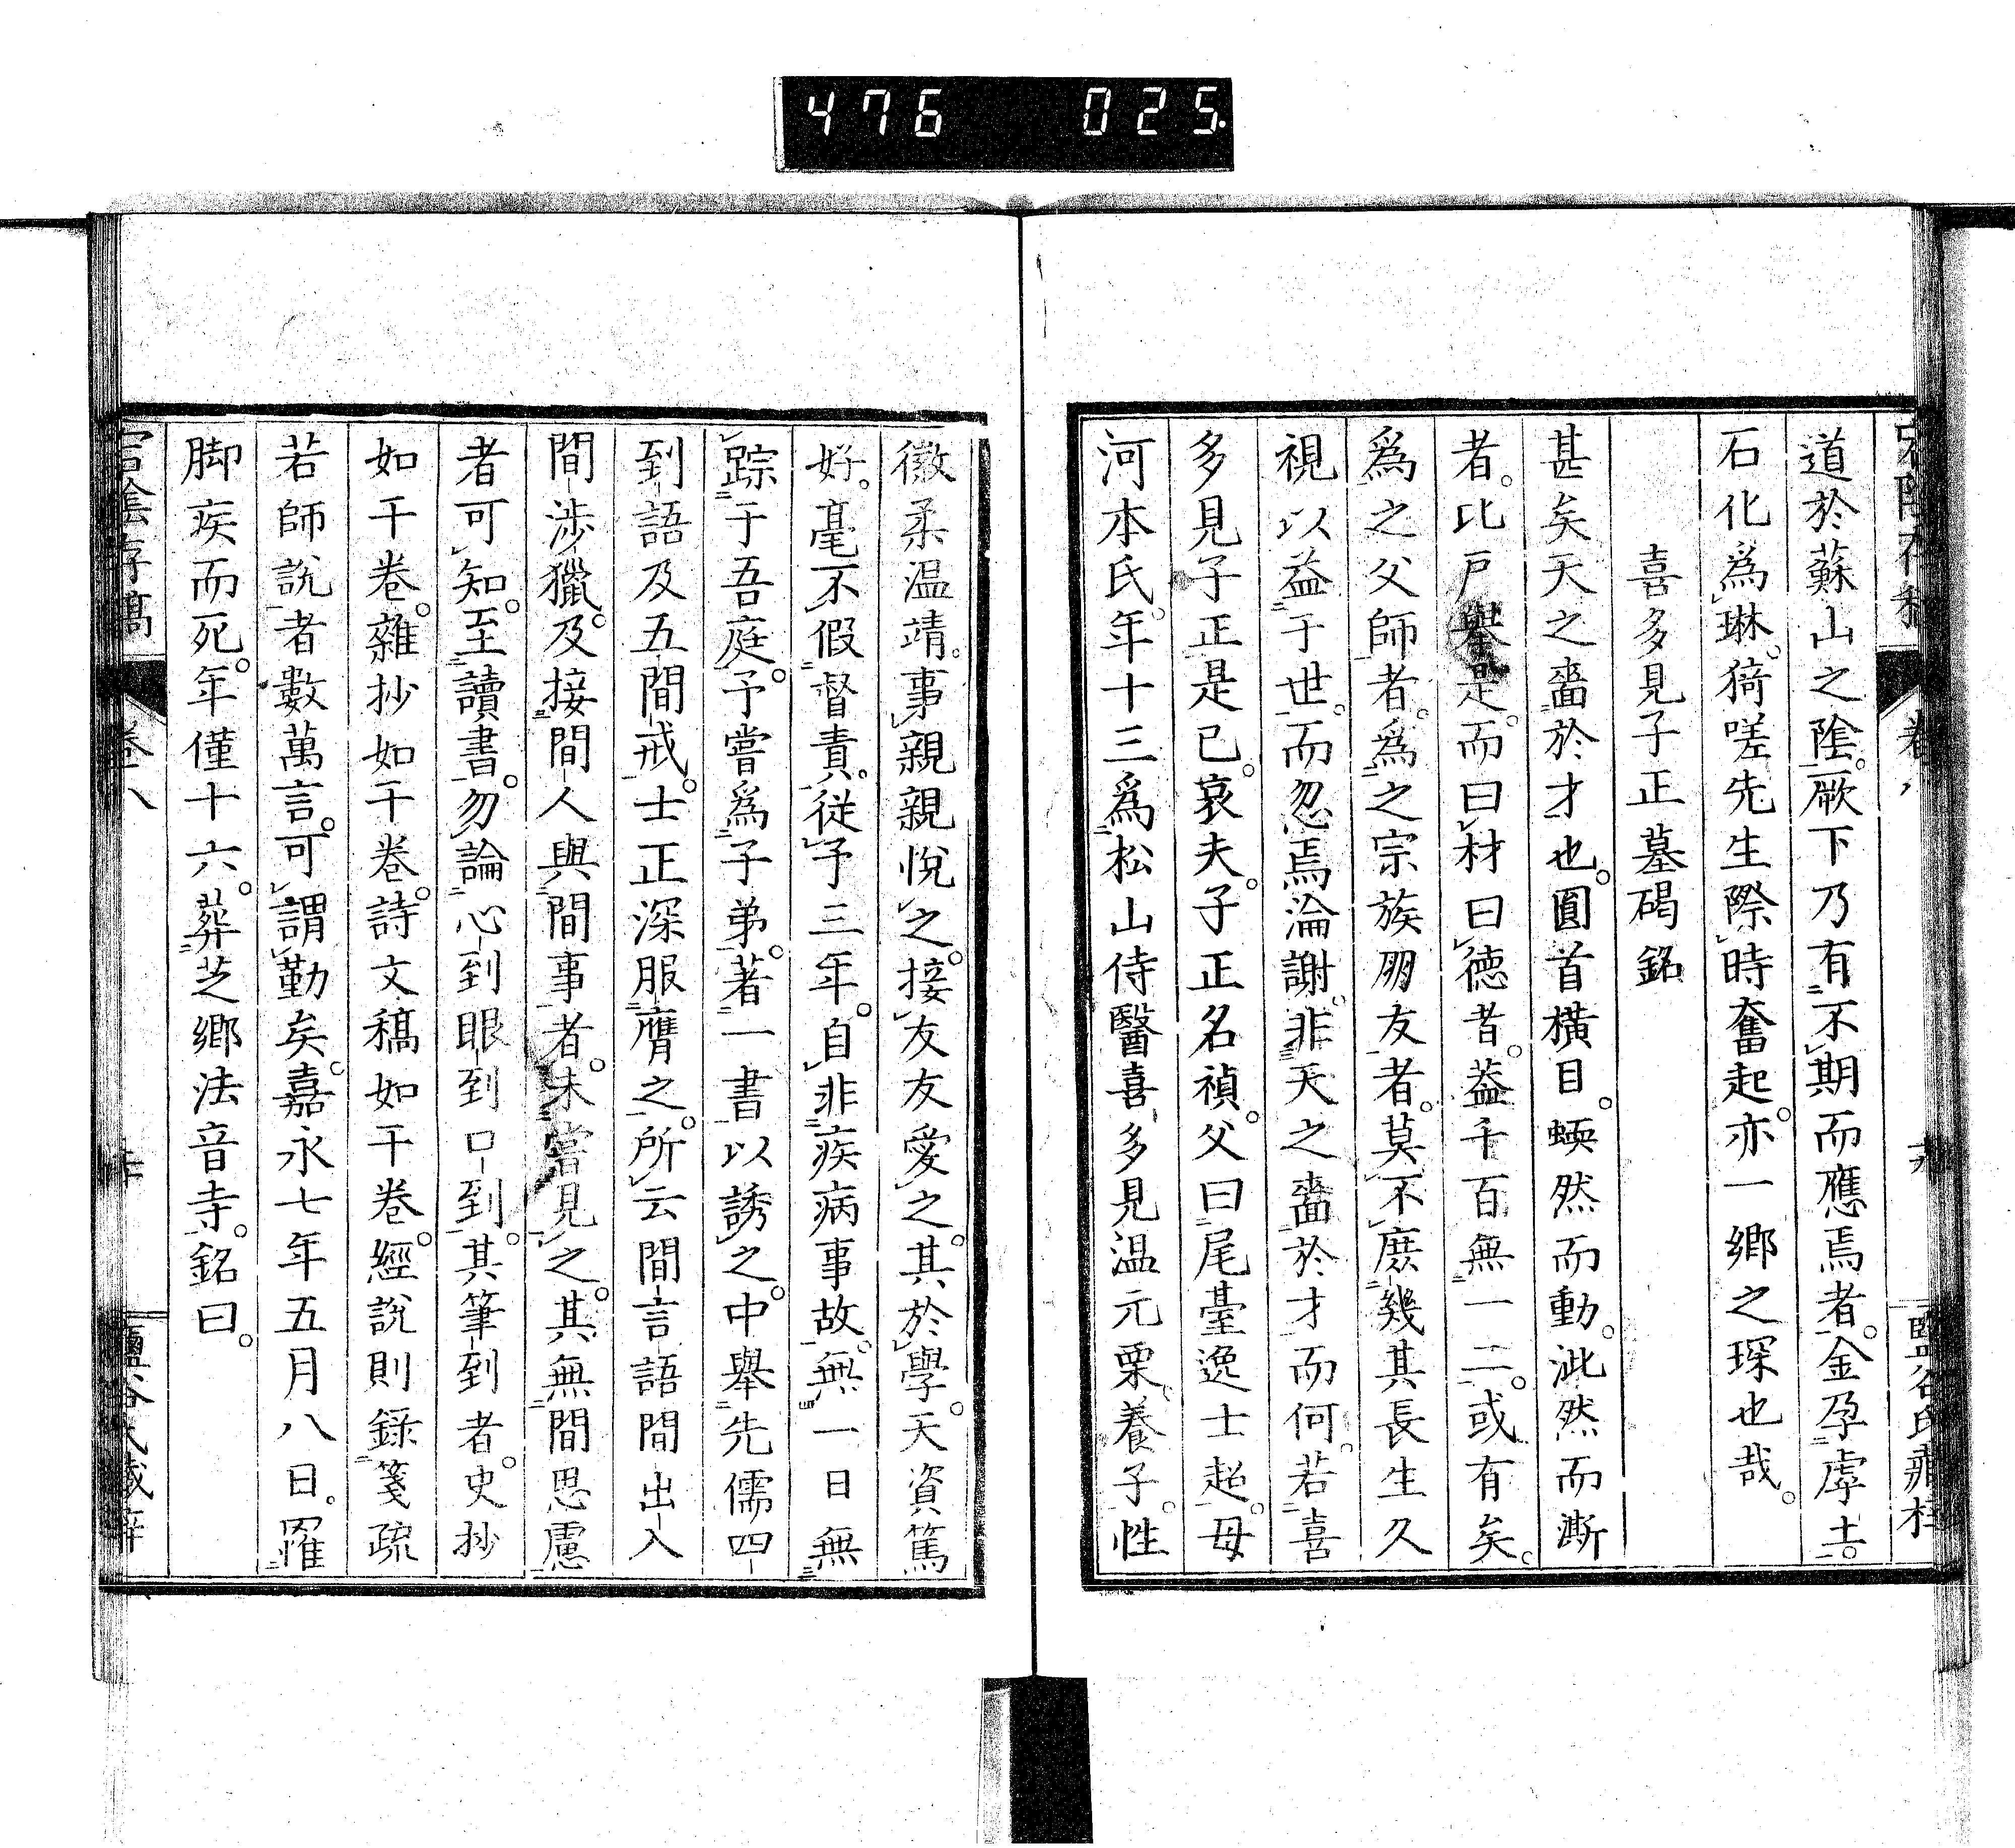 476 025
宕陰存稿 卷八 鹽谷氏藏梓
道於蘇山之陰。厥下乃有不期而應焉者。金孕虖土。
石化爲琳。猗嗟先生。際時奮起。亦一鄉之琛也哉。
喜多見子正墓碣銘
甚矣天之嗇於才也。圓首橫目。蝡然而動。泚然而澌
者。比戶舉是。而曰材曰德者。葢千百無一二。或有矣。
爲之父師者。爲之宗族朋友者。莫不庶幾其長生久
視以益于世。而忽焉淪謝。非天之嗇於才而何。若喜
多見子正是已。哀夫。子正名禎。父曰尾臺逸士超。母
河本氏。年十三爲松山侍醫喜多見温元栗養子。性
徽柔温靖。事親親悅之。接友友愛之。其於學。天資篤
好。毫不假督責。從予三年。自非疾病事故。無一日無
踪于吾庭。予嘗爲子弟。著一書以誘之。中舉先儒四
到語及五間戒。士正深服膺之。所云間言語間出入
間涉獵。及接間人與間事者。未嘗見之。其無間思慮
者可知。至讀書。勿論心到眼到口到。其筆到者。史抄
如干卷。雜抄如干卷。詩文稿如干卷。經說則錄箋疏
若師說者數萬言。可謂勤矣。嘉永七年五月八日。罹
脚疾而死。年僅十六。葬芝鄉法音寺。銘曰。
宕陰存稿 卷八 鹽谷氏藏梓